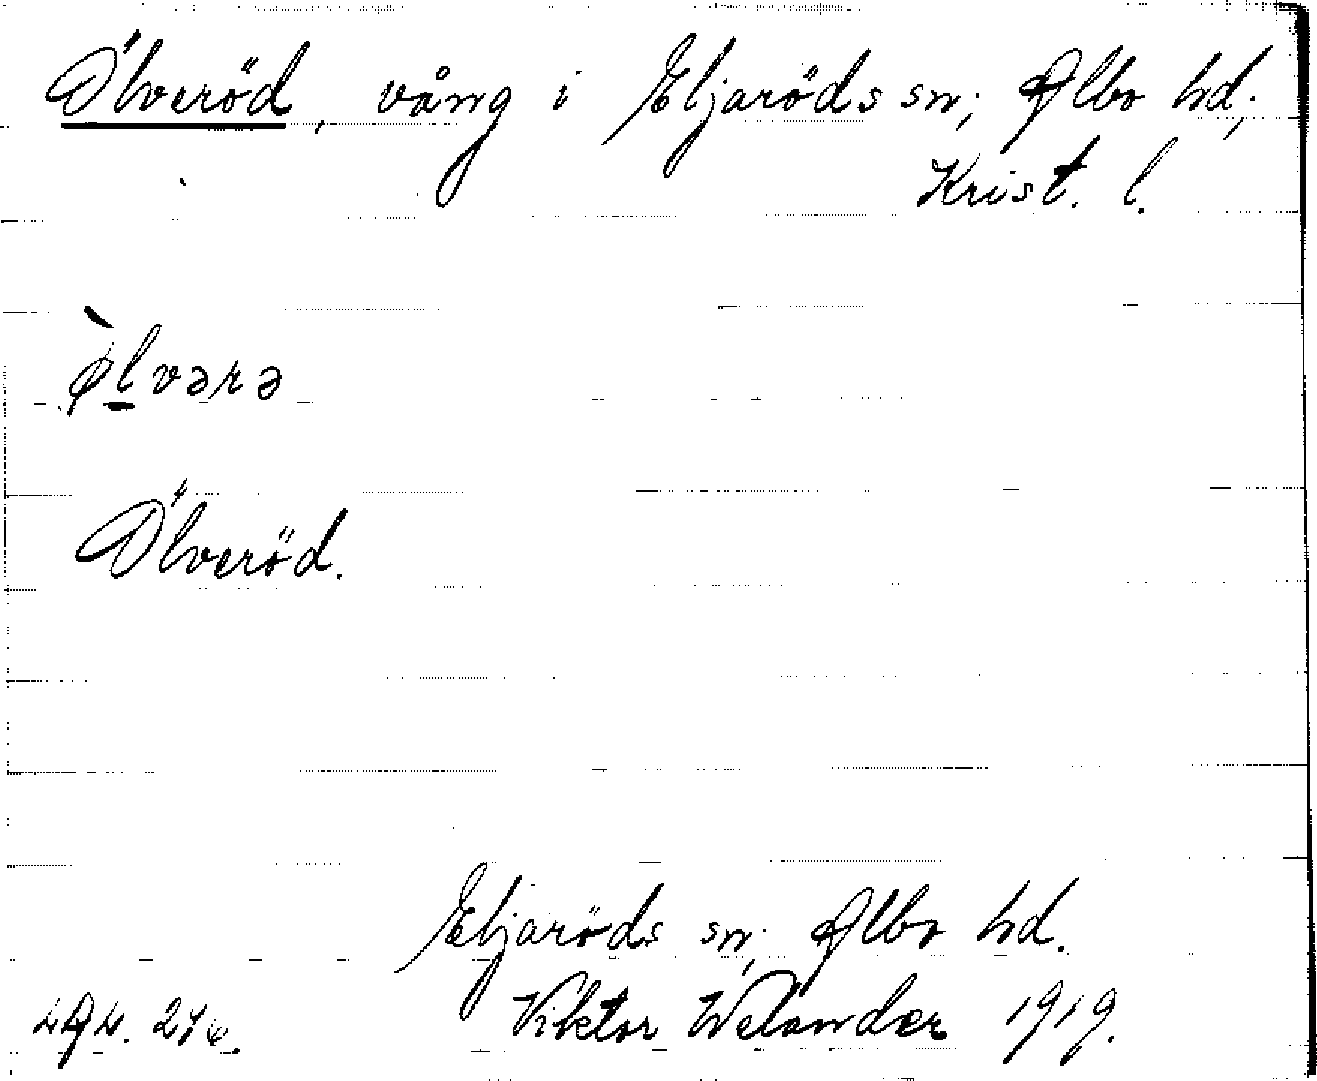 Ölveröd, vång i Eljaröds sn; Albo hd;
Krist. l.
ø̀lvərə
Ölveröd.
Eljaröds sn; Albo hd.
Viktor Welander 1919.